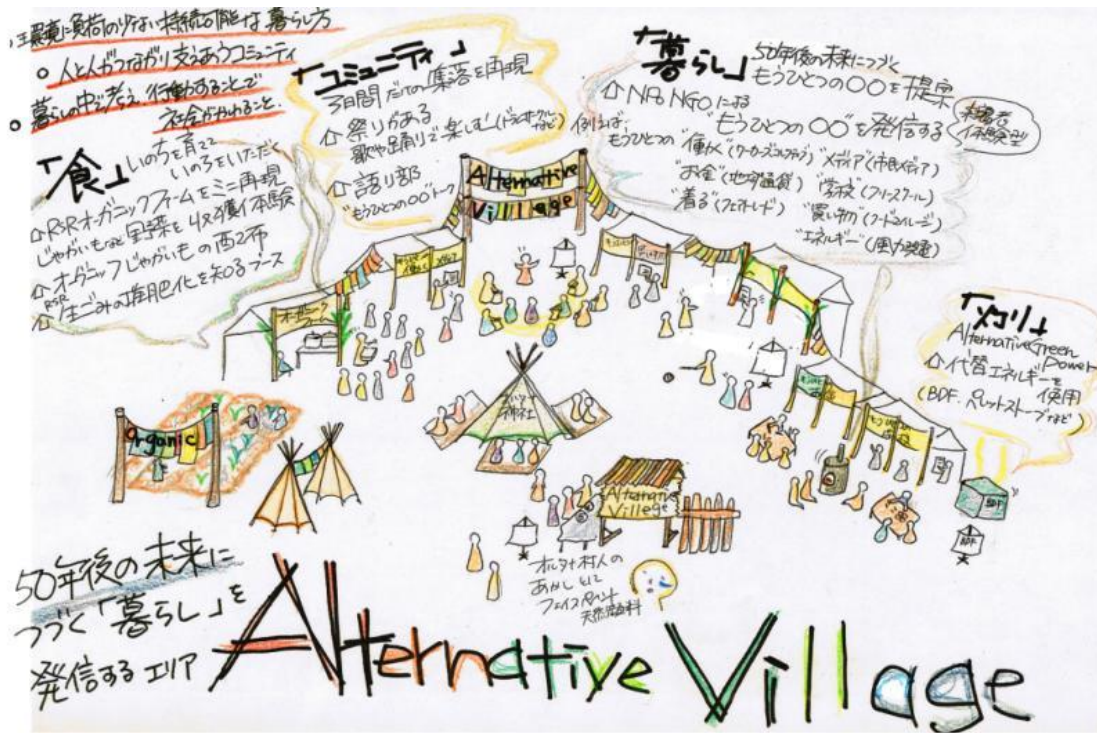 環境に負荷の少ない持続可能な暮らし方
○ 人と人がつながり支えあうコミュニティ
○ 暮らしの中で考え、行動することで
社会がかわること.
「食」
いのちを育て
いのちをいただく
⇧RSRオーガニックファームをミニ再現
じゃがいもなど野菜を収穫体験
⇧オーガニックじゃがいもの配布
⇧RSR生ごみの堆肥化を知るブース
「コミュニティ」
3日間だけの集落を再現
⇧祭りがある
歌や踊りで楽しむ
⇧語り部
"もうひとつの〇〇"トーク
「暮らし」
50年後の未来につづく
もうひとつの〇〇を提案
⇧NPO, NGOによる
"もうひとつの〇〇"を発信する
体験型
例えば
もうひとつの"働く"(ワーカーズコレクティブ) "メディア"(市民メディア)
"お金"(地域通貨) "学校"(フリースクール)
"着る"(フェアトレード) "買い物"(フードマイレージ)
"エネルギー"(風力発電)
「灯り」
Alternative Green Power
⇧代替エネルギーを
使用
(BDF、ペレットストーブなど)
Alternative
Village
オーガニック
ファーム
organic
神社
Alternative
Village
BDF
BDF
オルタナ村人の
あかしとして
フェイスペイント
天然顔料
50年後の未来に
つづく「暮らし」を
発信するエリア
Alternative Village